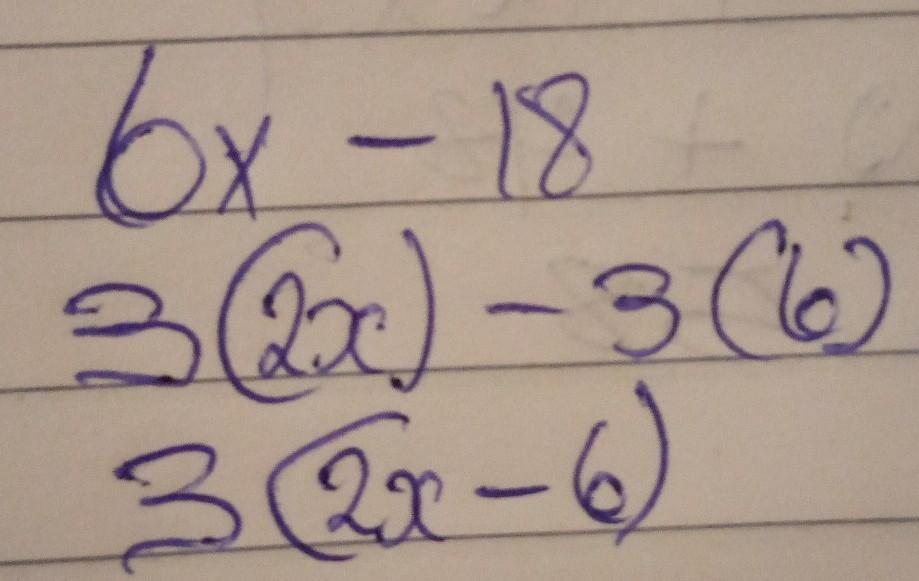 6x - 18
3(2x) - 3(6)
3(2x - 6)